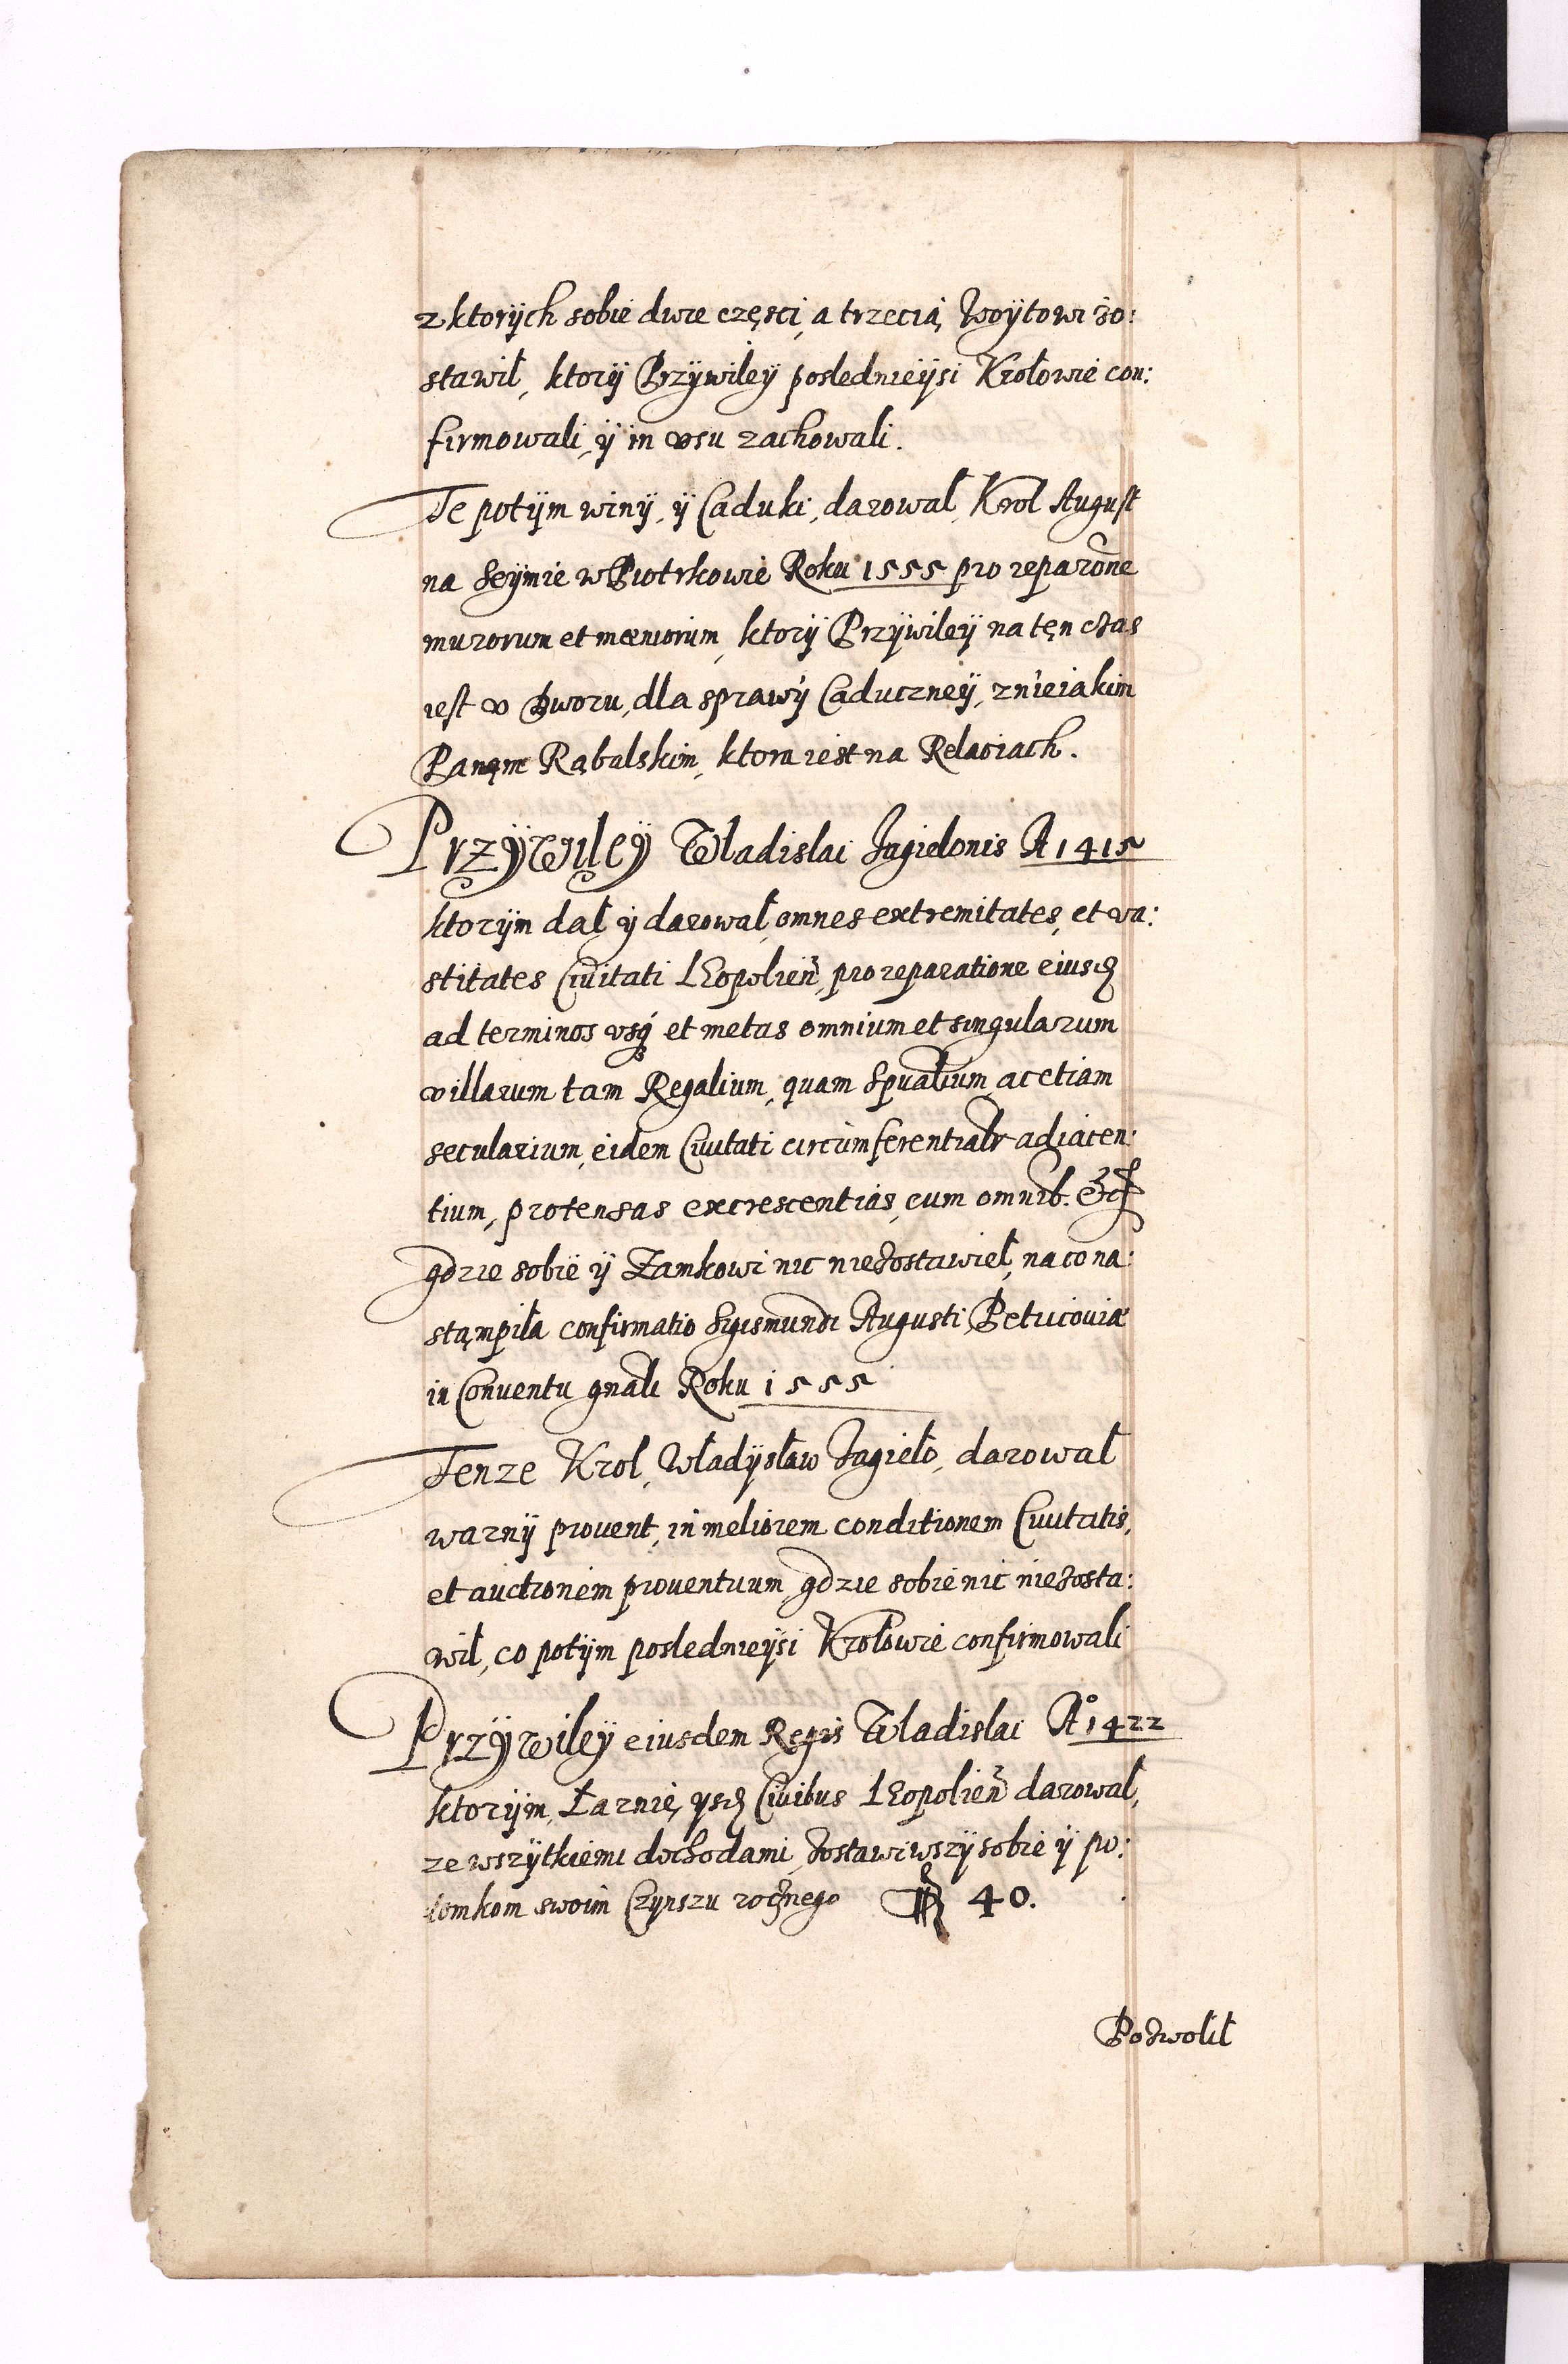 z ktorÿch sobie dwie częsci, a trzecią Woÿtowi zo:
stawił, ktorÿ Przÿwileÿ posledniejÿsi Krolowie con:
firmowali, ÿ in vsu zachowali.
Te potÿm winÿ, ÿ Caduki, darował, Krol August
na Seÿmie w Piotrkowie Roku 1555 pro reparõne
murorum et mœniorum, ktorÿ Przÿwileÿ na tęn czas
iest v Dworu, dla sprawÿ Caduczneÿ, z nieiakim
Panęm Rąbalskim, ktora iest na Relaciach.
Przÿwileÿ Wladislai Jagielonis A 1415
ktorÿm dał ÿ darował omnes extremitates, et va:
stitates Ciuitati LEopolień, pro reparatione eiusd
ad terminos vsq et metas omnium et singularum
villarum tam Regalium, quam Spualium, ac etiam
secularium, eidem Ciuitati circumferentialr adiacen:
tium, protensas excrescentias, cum omnib. Etc
gdzie sobie ÿ Zamkowi nic niezostawieł, na co na:
stąmpiła confirmatio Sigismundi Augusti, Petricouiæ
in Conuentu gnali Roku 1555
Tenze Krol, Władÿsław Jagieło, darował
warnÿ prouent, in meliorem conditionem Ciuitatis,
et auctionem prouentuum, gdzie sobie nic niezosta:
wił, co potÿm posledniejÿsi Krolowie confirmowali
Przÿwileÿ eiusdem Regis Wladislai Aº 1422
ktorÿm, Łaznię, ysd Ciuibus LEopolień darował,
ze wszÿtkiemi dochodami, zostawiwszÿ sobie ÿ po:
tomkom swoim Czynszu rocznego 40.
Pozwolił